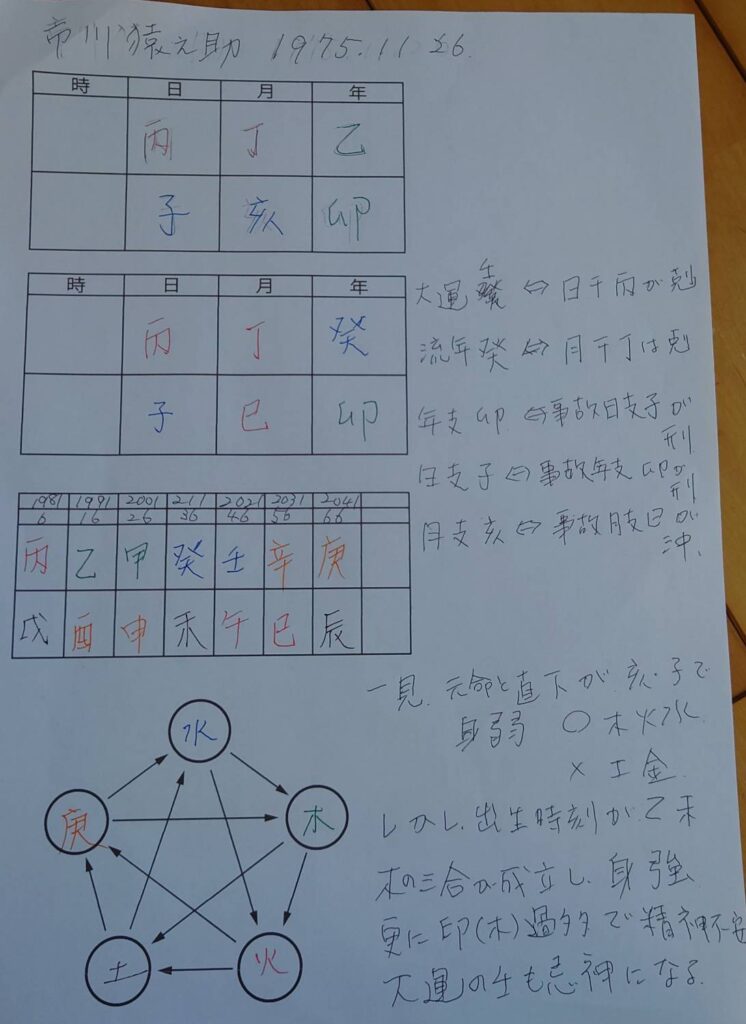 市川猿之助 1975.11.26.
時 日 月 年
丙 丁 乙
子 亥 卯
時 日 月 年
丙 丁 癸
子 巳 卯
大運 壬 ⇔ 日干丙が剋
流年癸 ⇔ 月干丁は剋
年支卯 ⇔事故日支子が刑
日支子 ⇔事故年支卯が刑
月支亥 ⇔ 事故月支巳が冲、
1981 1991 2001 211 2021 2031 2041
6 16 26 36 46 56 66
丙 乙 甲 癸 壬 辛 庚
戊 酉 申 未 午 巳 辰
一見、元命と直下が亥・子で
身弱 ○木火水
×土金
しかし、出生時刻が乙未
木の三合が成立し、身強
更に印(木)過多で精神不安
大運の壬も忌神になる。
水
庚
木
土
火